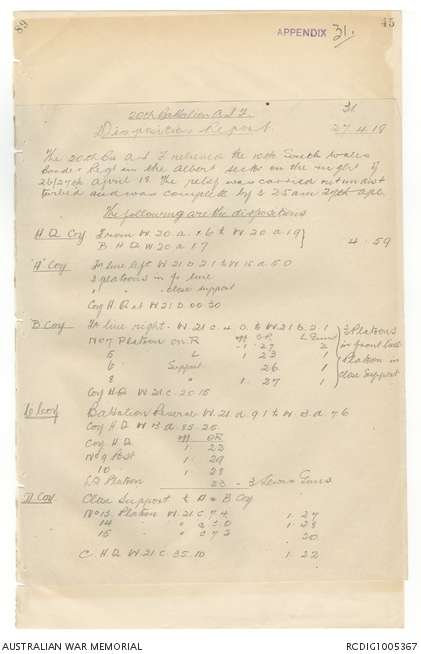 89
45
APPENDIX 31.
31
20th Battalion A.I.F.
Disposition Report 27.4.18
The 20th Bn A I F relieved the 10th South Wales
Borders Regt in the Albert sector on the night of
26/27th April 18. The relief was carried out undist
urbed and was complete by 3.25am 27th Apl.
The following are the dispositions
H.Q. Coy From W 20 a.1.6 to W 20 a.19
B.H.Q W 20 a 17
4.59
"A" Coy In line left W 21 D 21 to W 15 d 50
3 platoons in fr line
" close support
Coy H.Q at W 21 D 00.30
"B" Coy In line right. W 21 C 4.0 to W 21 D 2.1
3 Platoons in front line
1 Platoon in close Support
M OR L Guns
No 7 Platoon on R 1 27 2
5 L 1 23 1
6 Support 26 1
8 " 1 27 1
Coy H.Q W 21 C 20 15
"C" Coy Battalion Reserve W 21 d 9 1 to W 3 d 7 6
Coy H.Q W 3 d 85.25
M OR
Coy H.Q 1 22
No 9 Post 1 29
10 1 23
12 Platoon 23 - 3 Lewis Guns
"D" Coy Close Support to A & B Coy
No 13 Platoon W 21 C 7 4 1 27
14 " " a 5 0 1 23
15 " " c 7 3 20
C.H.Q W 21 C 35.10 1 22
AUSTRALIAN WAR MEMORIAL
RCDIG1005367